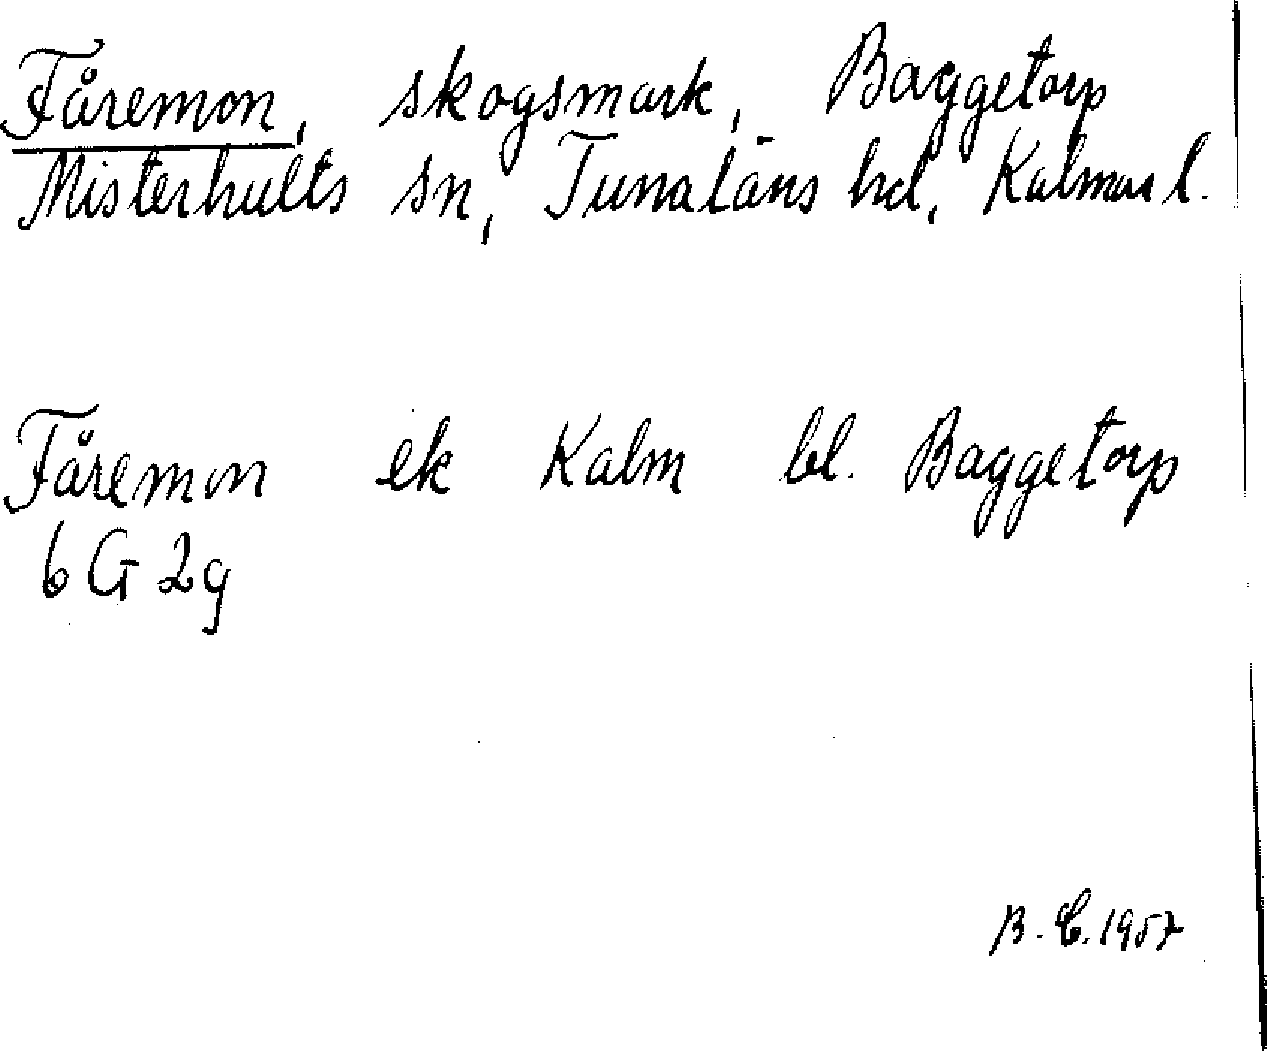 Fåremon, skogsmark, Baggetorp
Misterhults sn, Tunaläns hd, Kalmar l.
Fåremon ek Kalm bl. Baggetorp
6 G 2g
B. C. 1957